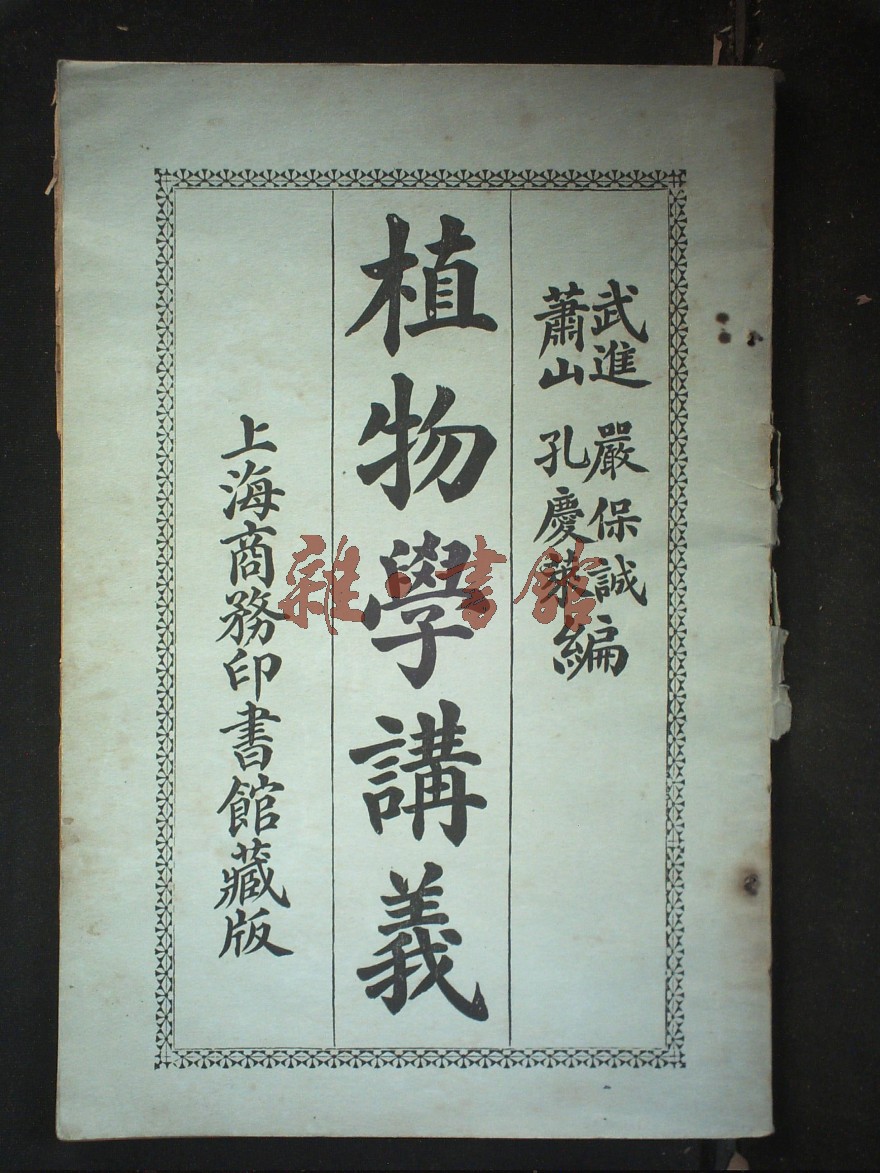 武進 嚴保誠
蕭山 孔慶萊
編
植物學講義
上海商務印書館藏版
雜書館